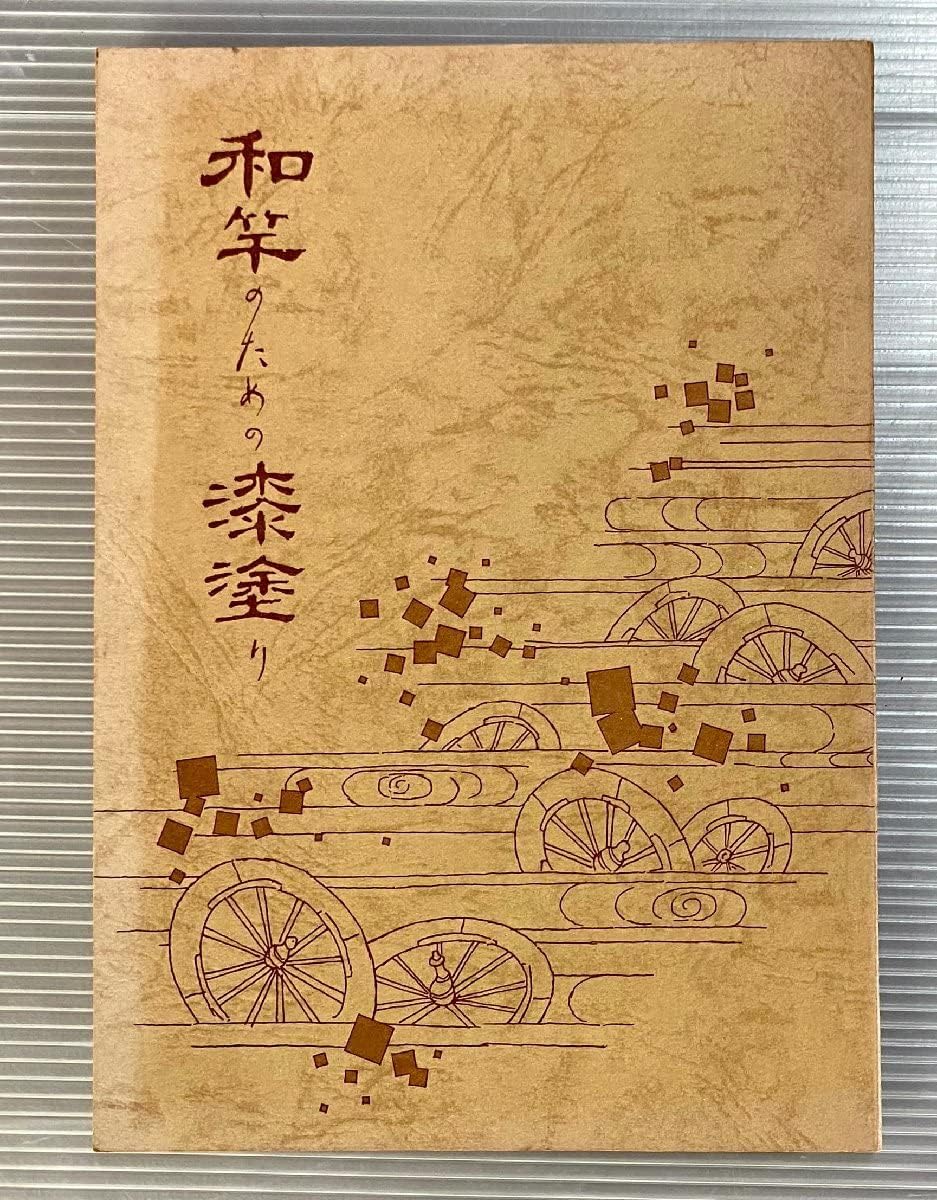 和竿のための漆塗り